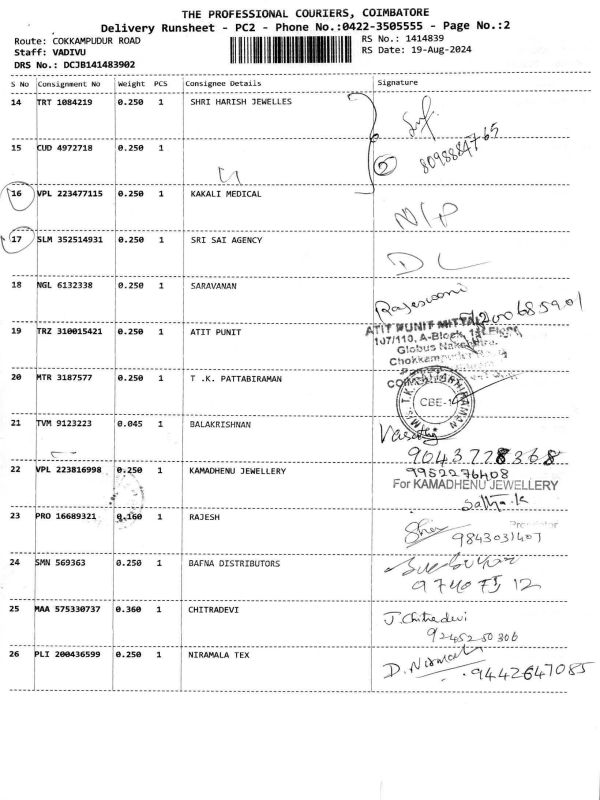 THE PROFESSIONAL COURIERS, COIMBATORE
Delivery Runsheet - PC2 - Phone No.:0422-3505555 - Page No.:2
Route: COKKAMPUDUR ROAD RS No.: 1414839
Staff: VADIVU RS Date: 19-Aug-2024
DRS No.: DCJB141483902
S No Consignment No Weight PCS Consignee Details Signature
14 TRT 1084219 0.250 1 SHRI HARISH JEWELLES
15 CUD 4972718 0.250 1
5 8098884765
16 VPL 223477115 0.250 1 KAKALI MEDICAL
N/P
17 SLM 352514931 0.250 1 SRI SAI AGENCY
DL
18 NGL 6132338 0.250 1 SARAVANAN
19 TRZ 310015421 0.250 1 ATIT PUNIT
ATIT PUNIT MITTAL
107/110, A-Block,
Globus
20 MTR 3187577 0.250 1 T .K. PATTABIRAMAN
CBE-
21 TVM 9123223 0.045 1 BALAKRISHNAN
9043728368
22 VPL 223816998 0.250 1 KAMADHENU JEWELLERY
9952276408
For KAMADHENU JEWELLERY
23 PRO 16689321 0.160 1 RAJESH
9843031407
24 SMN 569363 0.250 1 BAFNA DISTRIBUTORS
25 MAA 575330737 0.360 1 CHITRADEVI
J. Chitradevi
9245250306
26 PLI 200436599 0.250 1 NIRAMALA TEX
D. Nirmala
9442647085